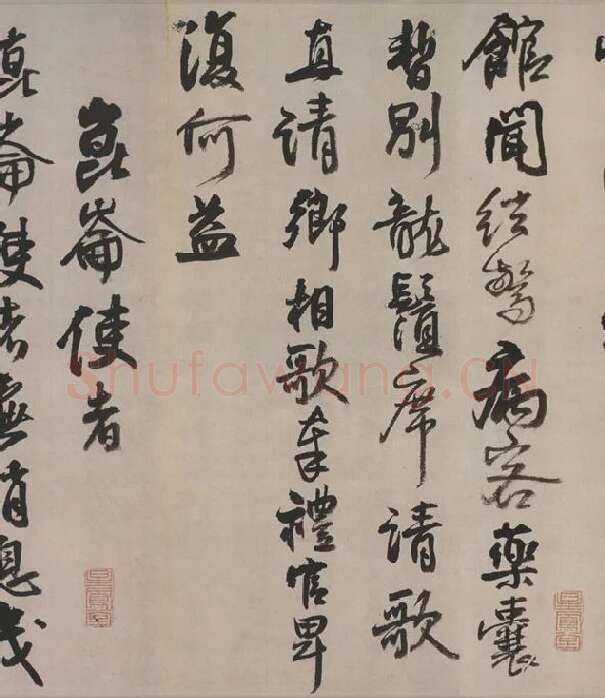 館聞絃驚病客藥囊
暫別龍鬚席請歌
直請卿相歌奉禮官卑
復何益
崑崙使者
崑崙使者無消息茂
Shufawang.cn